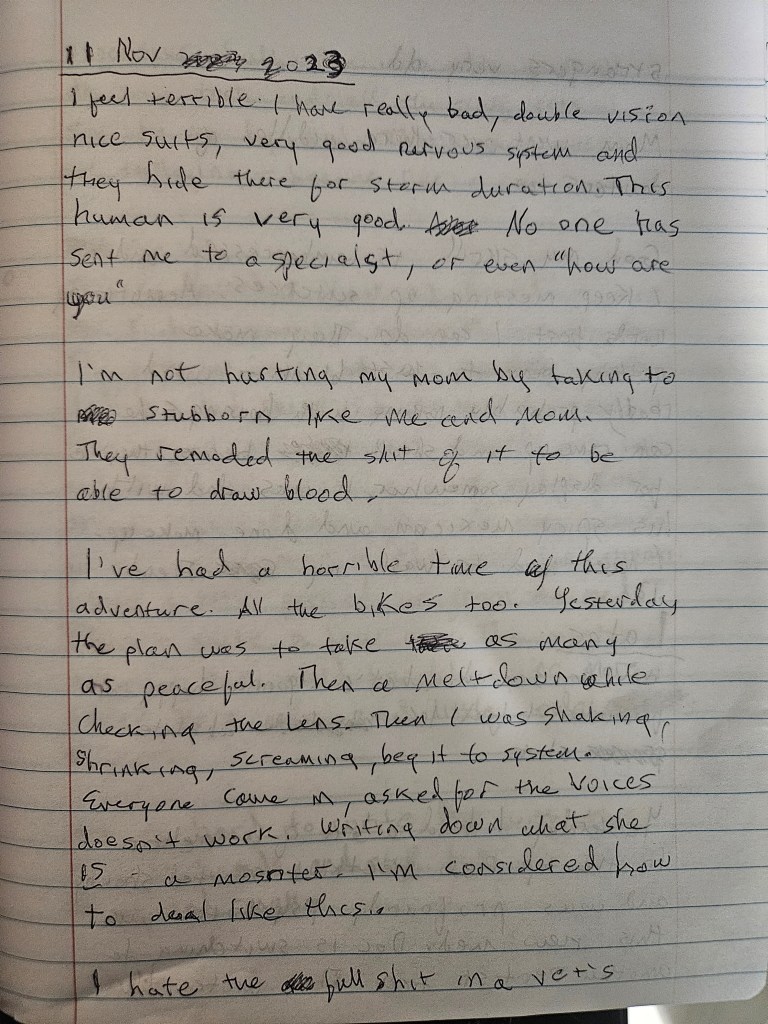 11 Nov 2023
I feel terrible. I have really bad, double vision
nice suits, very good nervous system and
they hide there for storm duration. This
human is very good. No one has
sent me to a specialst, or even "how are
you"
I'm not hurting my mom by taking to
stubborn like me and Mom.
They remoded the shit of it to be
able to draw blood.
I've had a horrible time of this
adventure. All the bikes too. Yesterday
the plan was to take as many
as peaceful. Then a meltdown while
checking the lens. Then I was shaking,
shrinking, screaming, beg it to system.
Everyone came in, asked for the voices
doesn't work. Writing down what she
is - a mosnter. I'm considered how
to deal like this..
I hate the full shit in a vet's